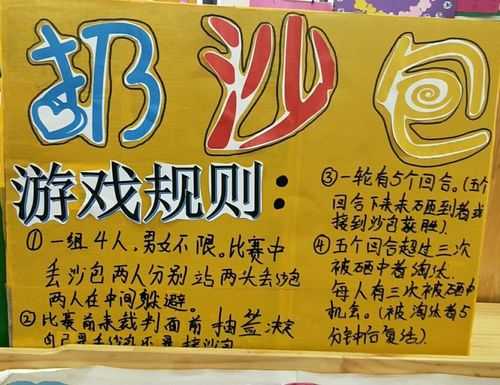 扔沙包
游戏规则：
①一组4人，男女不限。比赛中
丢沙包两人分别站两头丢沙包
两人在中间躲避。
②比赛前来裁判面前抽签决
自己是丢沙包还是接沙包
③一轮有5个回合。(五个
回合下来未砸到者或
接到沙包获胜)
④五个回合超过三次
被砸中者淘汰.
每人有三次被砸中
机会。(被淘汰者5
分钟后复活).